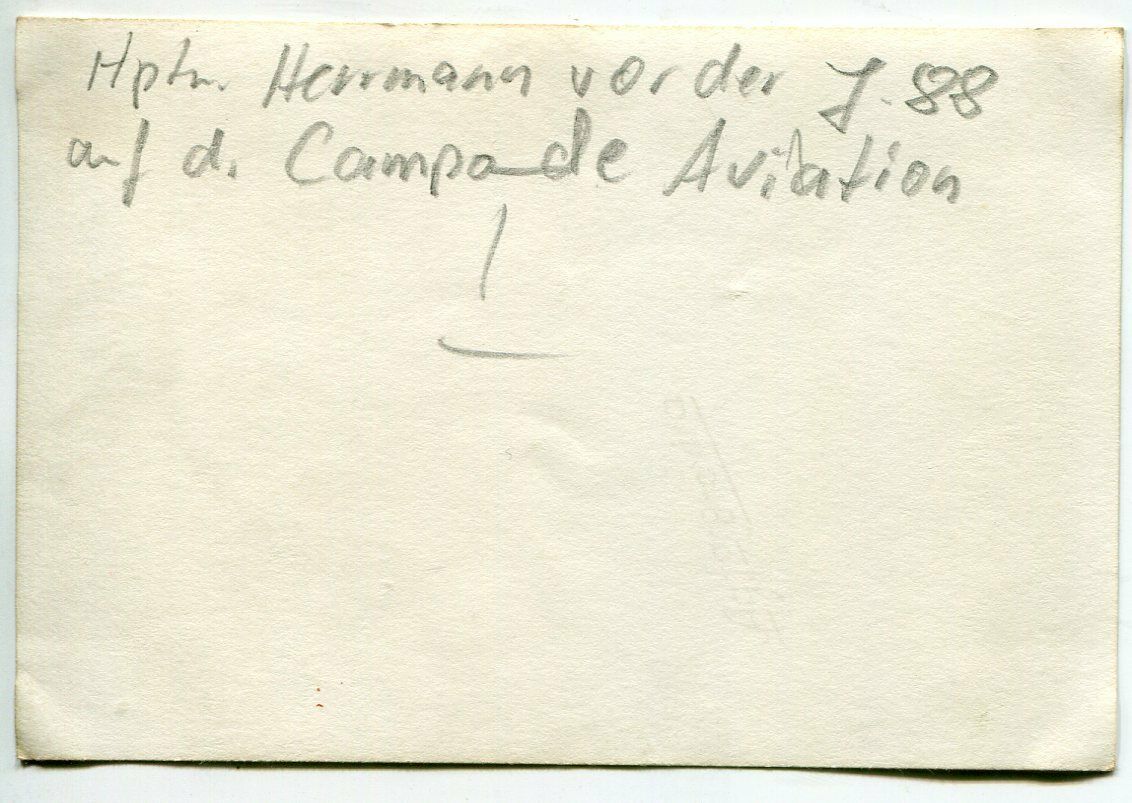 Hptm. Herrmann vor der J. 88
auf d. Campo de Aviation